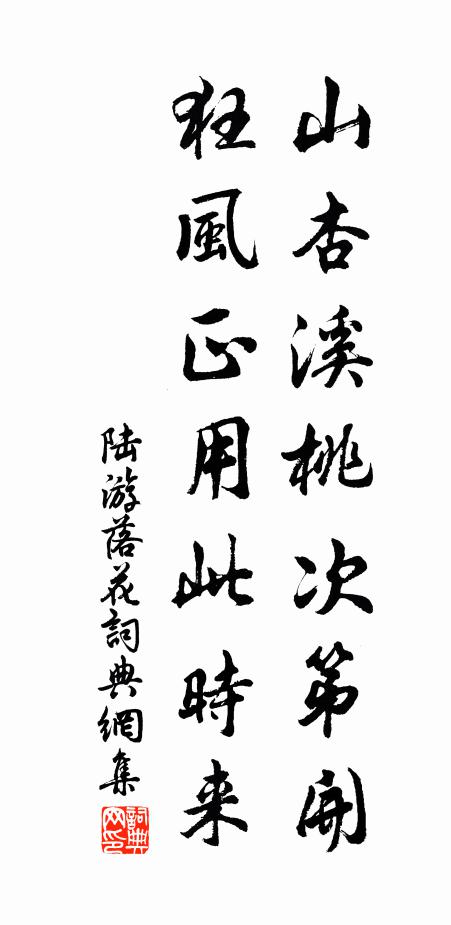 山杏溪桃次第開
狂風正用此時来
陆游落花詞典網集
詞典网印